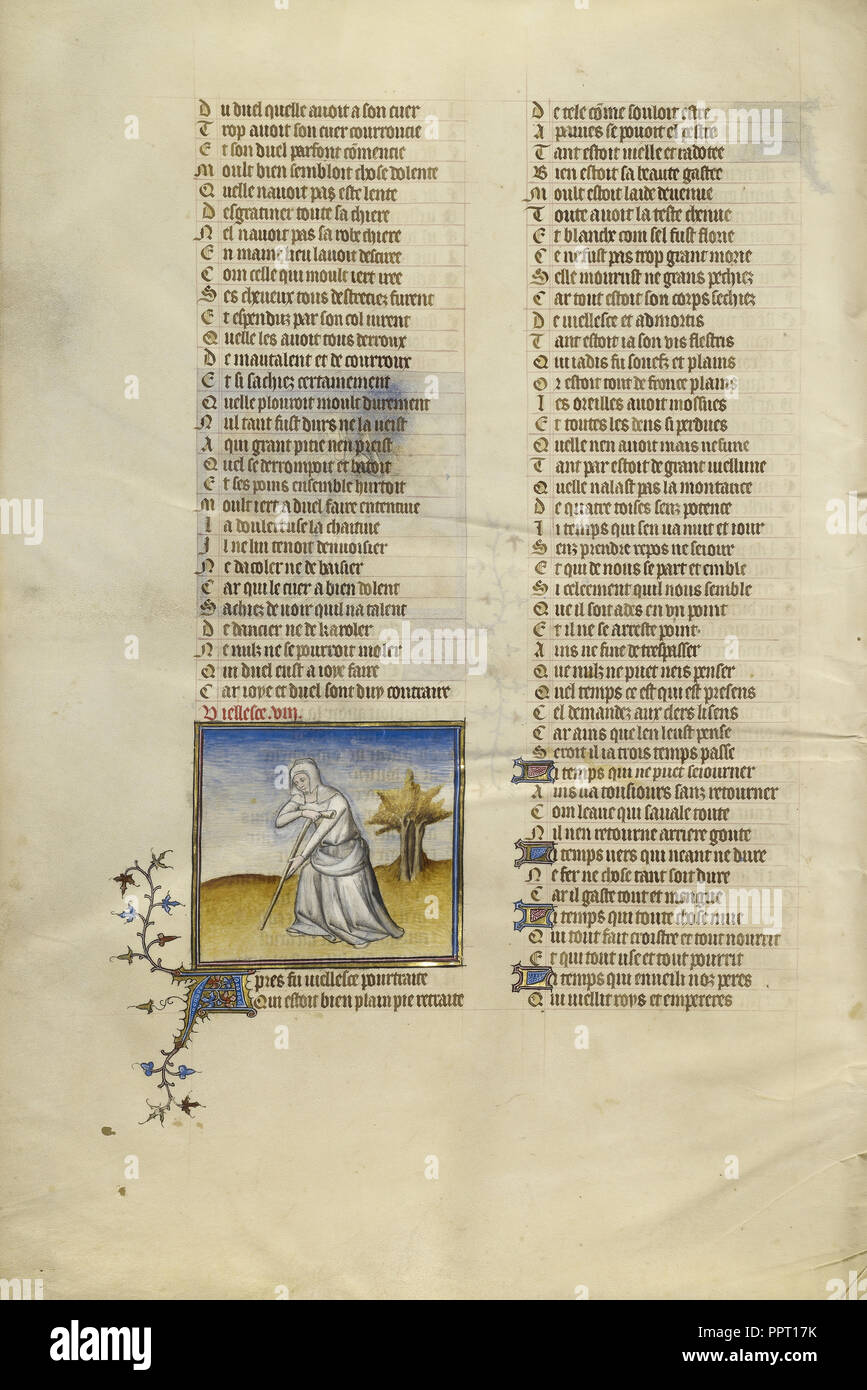 Du duel quelle auoit a son cuer
Trop auoit son cuer courroucie
Et son duel parfont cōmencie
Moult bien sembloit chose dolente
Quelle nauoit pas este lente
Desgratiner toute sa chiere
Nel nauoit pas sa robe chiere
En maint lieu lauoit desciree
Com celle qui moult iert iree
Ses cheueux tous destreciez furent
Et espenduz par son col iurent
Quelle les auoit tous derroux
De mautalent et de courroux
Et si sachiez certainement
Quelle plouroit moult durement
Nul tant fust durs ne la veist
A qui grant pitie nen preist
Quel se derrompoit et batoit
Et ses poins ensemble hurtoit
Moult iert a duel faire ententiue
La doulereuse la chaitiue
Il ne lui tenoit denuoisier
Ne dacoler ne de baisier
Car qui le cuer a bien dolent
Sachiez de uoir quil na talent
De dancier ne de karoler
Ne nulz ne se pourroit moler
Qui duel eust a ioye faire
Car ioye et duel sont duy contraire
Viellesce .viij.
Apres fu uiellesce pourtraite
Qui estoit bien plain pie retraite
De tele cōme souloit estre
A paines se pouoit el pestre
Tant estoit uielle et radotee
Bien estoit sa beaute gastee
Moult estoit laide deuenue
Toute auoit la teste chenue
Et blanche com sel fust florie
Ce ne fust pas trop grant morie
Selle mourust ne grans pechiez
Car tout estoit son corps sechiez
De uiellesce et admortis
Tant estoit ia son vis flestris
Qui iadis fu souefz et plains
Or estoit tout de fronce plains
Les oreilles auoit mossues
Et toutes les dens si perdues
Quelle nen auoit mais nesune
Tant par estoit de grant uiellune
Quelle nalast pas la montance
De quatre toises senz potence
Li temps qui sen ua nuit et iour
Senz prendre repos ne seiour
Et qui de nous se part et emble
Si celeement quil nous semble
Que il soit ades en vn point
Et il ne se arreste point
Ains ne fine de trespasser
Que nulz ne puet neis penser
Quel temps ce est qui est presens
Cel demandez aux clers lisens
Car ains que len leust pense
Seroit il ia trois temps passe
Li temps qui ne puet seiourner
Ains ua tousiours sanz retourner
Com leaue qui sauale toute
Nil nen retourne arriere goute
Li temps uers qui neant ne dure
Ne fer ne chose tant soit dure
Car il gaste tout et mengue
Li temps qui toute chose mue
Qui tout fait croistre et tout nourrit
Et qui tout use et tout pourrit
Li temps qui enueilli noz peres
Qui uiellit roys et empereres
a
alamy
Image ID: PPT17K
www.alamy.com